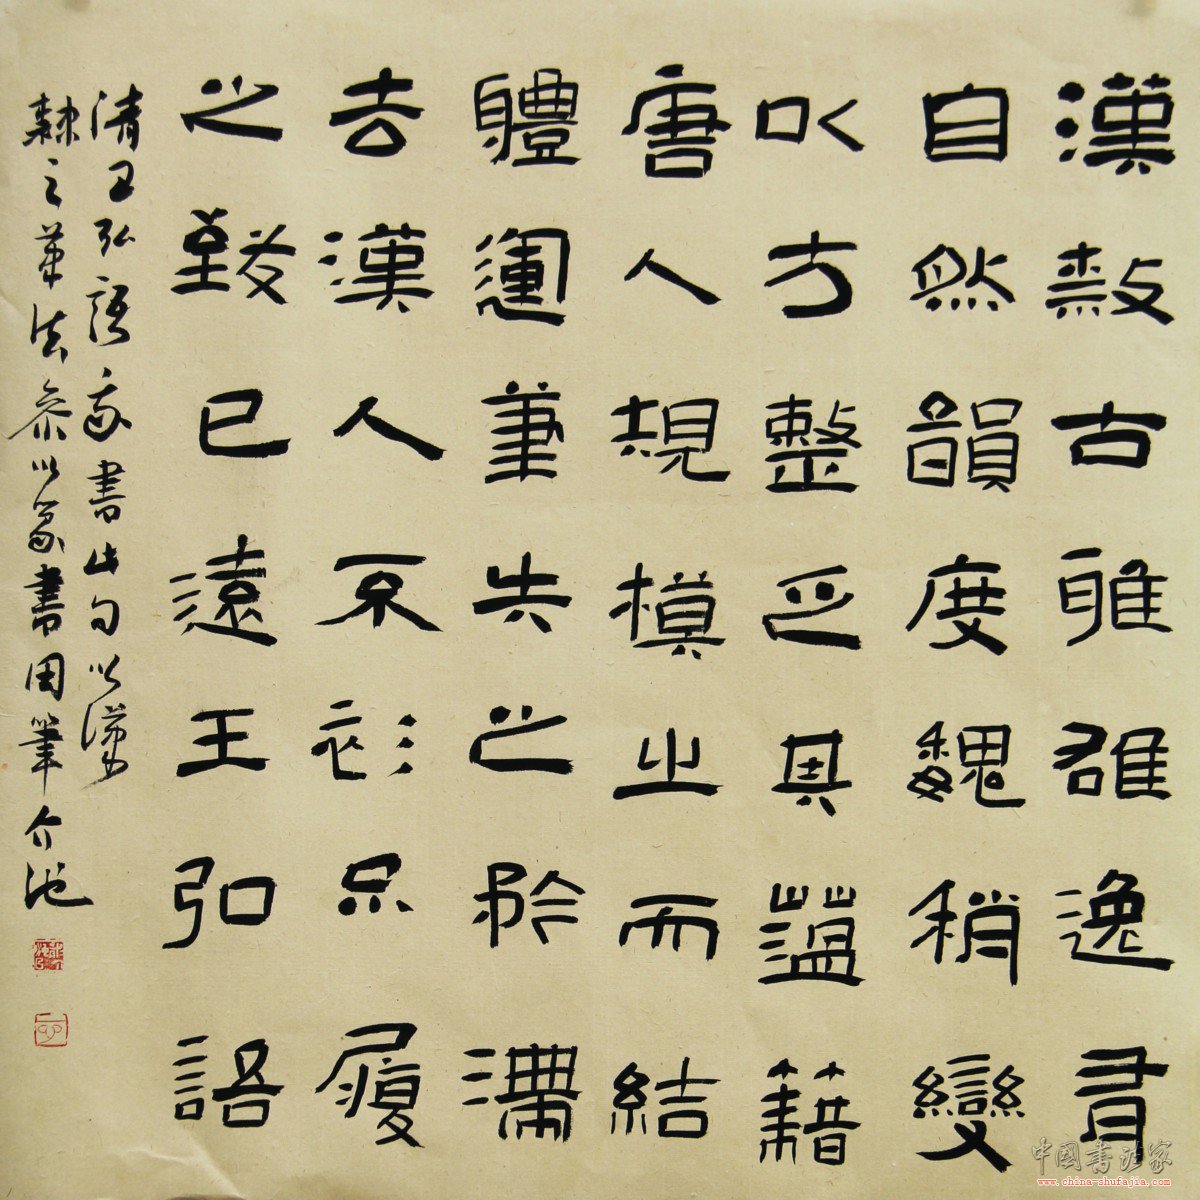 漢隸古雅雄逸有
自然韻度魏稍變
以方整乏其蘊藉
唐人規模之而結
體運筆失之矜滯
去漢人不衫不履
之致已遠王弘語
清王弘語我書此句以漢
隸之筆法參以篆書用筆介池
中国书法家
www.china-shufajia.com